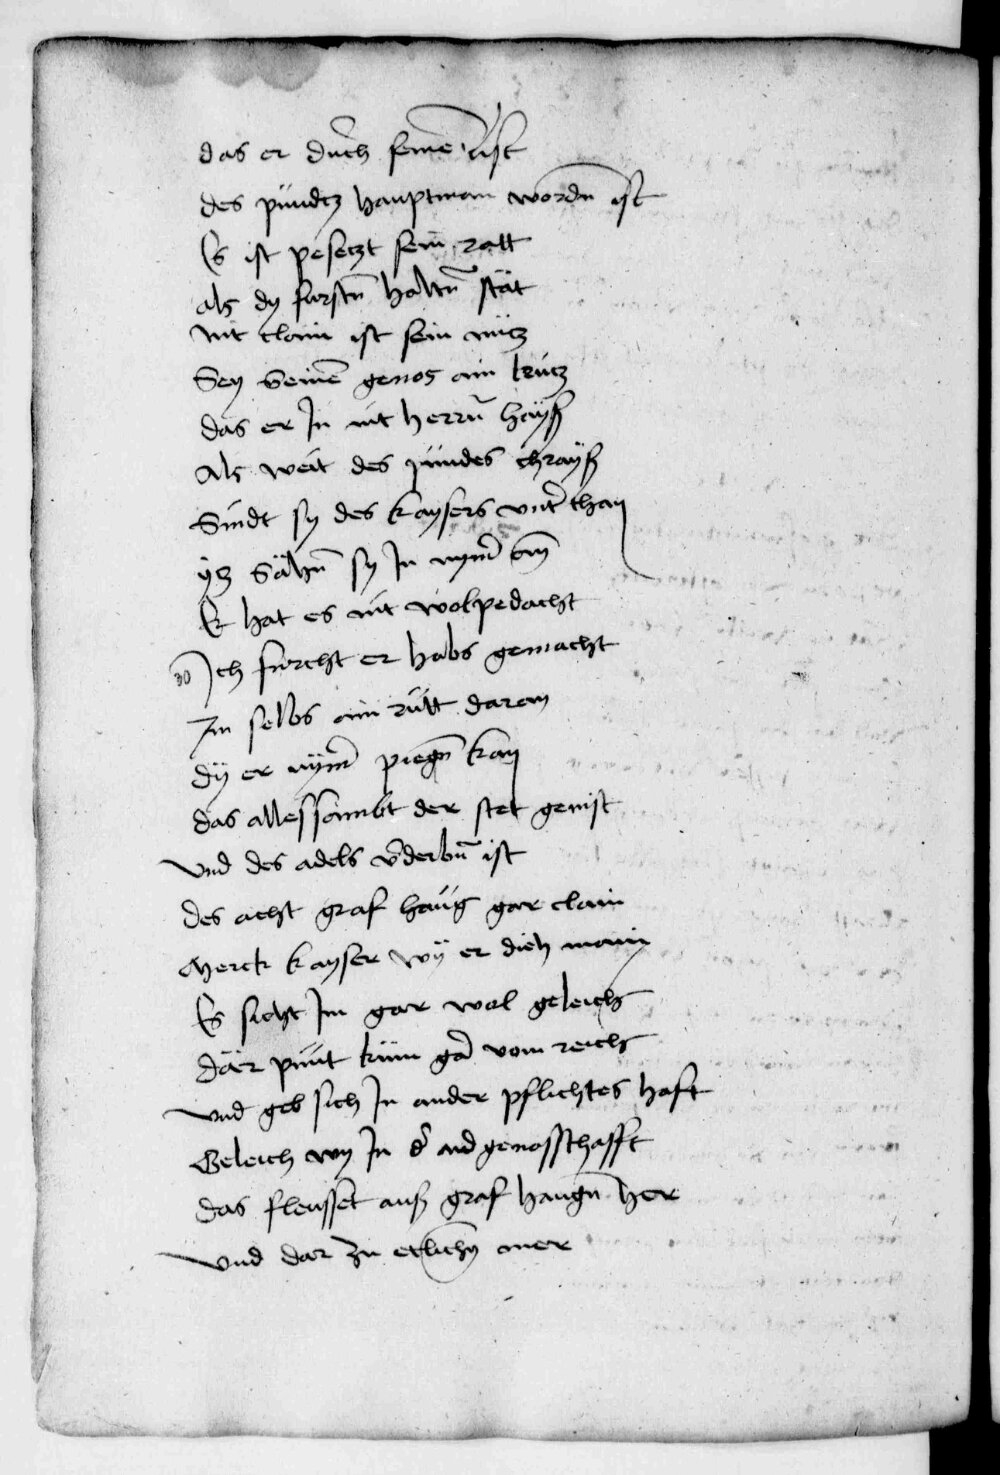 das er durch seine list
des pundtz hauptman wordn ist
Es ist pesetzt sein ratt
als dy furstn haltn stät
nit clain ist sein nütz
Sey seinen genos ain trutz
das er In nit herrn hayß
Als weit des pundes chrayß
Sindt sy des kaysers vnterthan
ytz sähn sy In nymer an
Er hat es nit wolpedacht
Ich furcht er habs gemacht
Im selbs ain rütt daran
dy er nymer piegn kan
das alles sambt der stet genist
vnd des adels verderbn ist
des acht graf haüg gar clain
Merck kayser wy er dich main
Es sicht Im gar wol geleich
däer punt küm gar vom reich
vnd geb sich In ander pflichtes haft
Geleich wy In der aid genosschafft
das fleusset auß graf haugn her
vnd dar zu etlichen mer